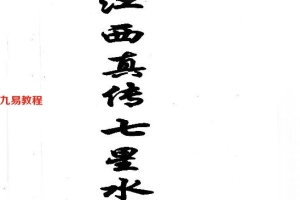 江西真传七星水
九易教程